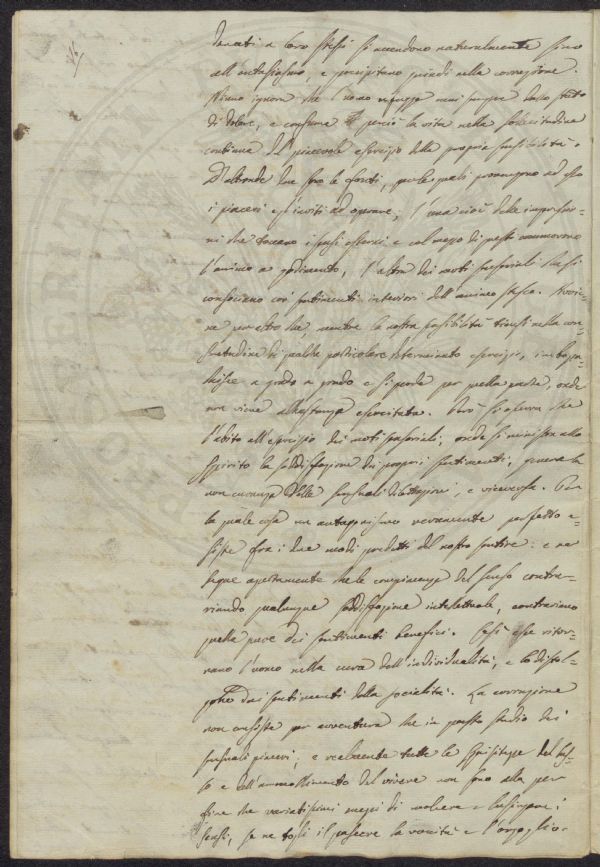 loro stessi si accendono naturalmente sino
all'entusiasmo, e precipitano quindi nella corruzione.
Niuno ignora che l'uomo rifugge mai sempre dallo stato
di dolore, e consuma perciò la vita nella sollecitudine
continua del piacevole esercizio della propria sensibilità.
D'altronde due sono le fonti, per le quali provengono ad esso
i piaceri e gl'inviti ad oprare; l'una cioè delle impressio-
ni che toccano i sensi esterni e col mezzo di questi commovono
l'animo a godimento, l'altra dei moti sensoriali che si
consociano coi sentimenti interiori dell'animo stesso. Avvie-
ne per altro che, mentre la nostra sensibilità tiensi nella con-
suetudine di qualche particolare determinato esercizio,
a grado a grado e si perde per quella parte, onde
non viene abbastanza esercitata. Però si osserva che
l'abito all'esercizio dei moti sensoriali, onde si ministra allo
spirito la soddisfazione dei proprii sentimenti, genera la
non curanza delle sensuali dilettazioni, e viceversa. Per
la quale cosa un antagonismo veramente perfetto e-
siste fra i due modi predetti del nostro sentire: e ne
segue apertamente che le compiacenze del senso contra-
riando qualunque soddisfazione intelettuale, contrariano
quella pure dei sentimenti benefici. Così esse ritor-
nano l'uomo nella cura dell'individualità, e lo distol-
gono dai sentimenti della socialità. La corruzione
non consiste per avventura che in questo studio dei
sensuali piaceri; e realmente tutte le squisitezze del lus-
so e dell'ammollimento del vivere non sono alla per
fine che variatissimi mezzi di molcere e lusingare i
sensi, se ne togli il pascere la vanità e l'orgoglio.